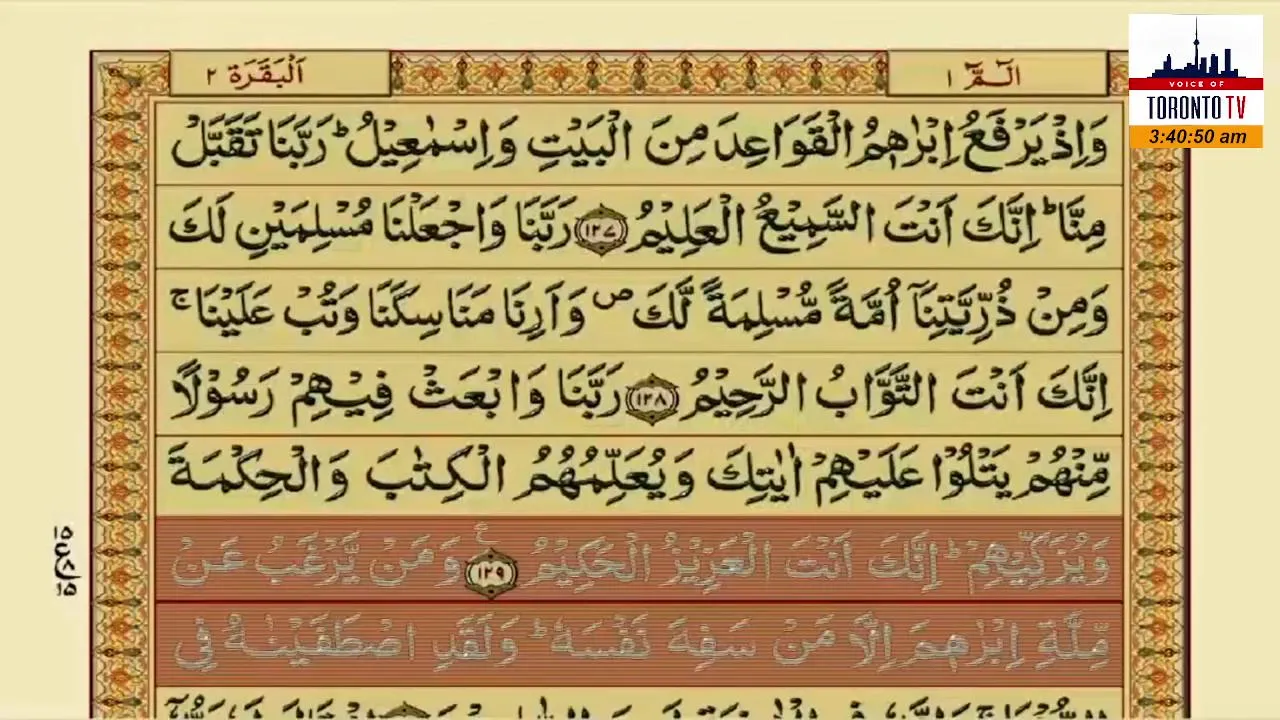 اَلْبَقَرَة ٢
الٓـمّٓ ١
VOICE OF
TORONTO TV
3:40:50 am
وَاِذْ يَرْفَعُ اِبْرٰهٖمُ الْقَوَاعِدَ مِنَ الْبَيْتِ وَاِسْمٰعِيْلُ ؕ رَبَّنَا تَقَبَّلْ
مِنَّا ؕ اِنَّكَ اَنْتَ السَّمِيْعُ الْعَلِيْمُ ﴿۱۲۷﴾ رَبَّنَا وَاجْعَلْنَا مُسْلِمَيْنِ لَكَ
وَمِنْ ذُرِّيَّتِنَاۤ اُمَّةً مُّسْلِمَةً لَّكَ ۪ وَاَرِنَا مَنَاسِكَنَا وَتُبْ عَلَيْنَا ۚ
اِنَّكَ اَنْتَ التَّوَّابُ الرَّحِيْمُ ﴿۱۲۸﴾ رَبَّنَا وَابْعَثْ فِيْهِمْ رَسُوْلًا
مِّنْهُمْ يَتْلُوْا عَلَيْهِمْ اٰيٰتِكَ وَيُعَلِّمُهُمُ الْكِتٰبَ وَالْحِكْمَةَ
وَيُزَكِّيْهِمْ ؕ اِنَّكَ اَنْتَ الْعَزِيْزُ الْحَكِيْمُ ﴿۱۲۹﴾ وَمَنْ يَّرْغَبُ عَنْ
مِّلَّةِ اِبْرٰهٖمَ اِلَّا مَنْ سَفِهَ نَفْسَهٗ ؕ وَلَقَدِ اصْطَفَيْنٰهُ فِى